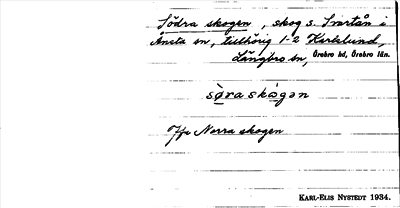 Södra skogen, skog s. Svartån i
Ånsta sn, tillhörig 1-2 Karlslund,
Längbro sn, Örebro hd, Örebro län.
sø̀ra skògən
Jfr Norra skogen
KARL-ELIS NYSTEDT 1934.